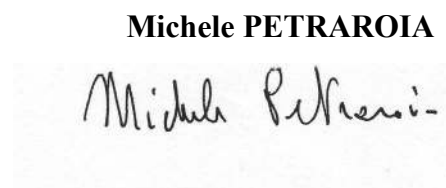 Michele PETRAROIA
Michele Petraroia